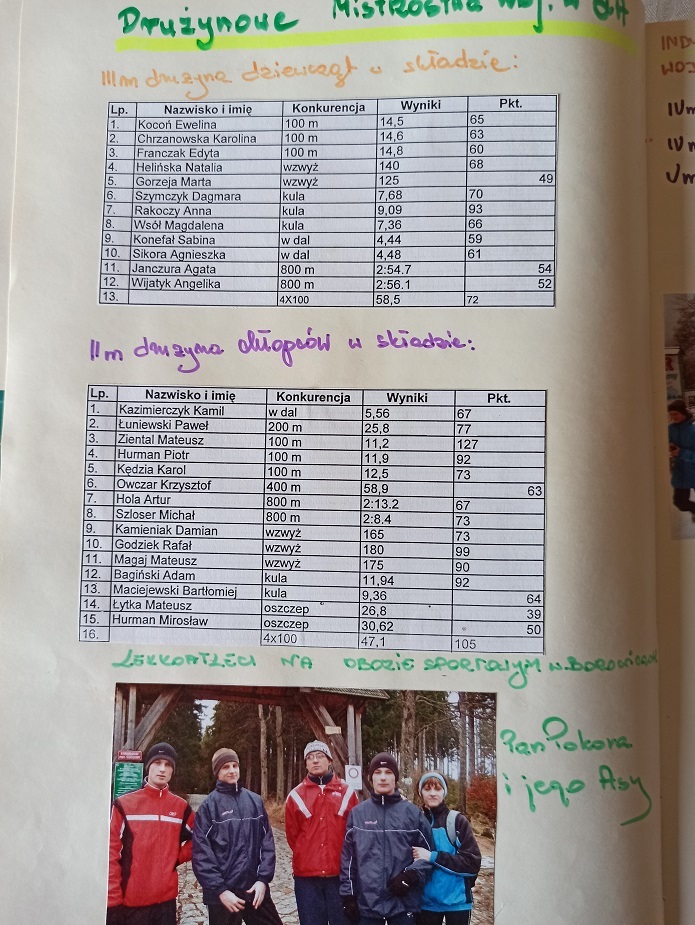 Drużynowe Mistrostwa Woj. w
IIIm drużyna dziewcząt w składzie:
Lp. Nazwisko i imię Konkurencja Wyniki Pkt.
1. Kocoń Ewelina 100 m 14,5 65
2. Chrzanowska Karolina 100 m 14,6 63
3. Franczak Edyta 100 m 14,8 60
4. Helińska Natalia wzwyż 140 68
5. Gorzeja Marta wzwyż 125 49
6. Szymczyk Dagmara kula 7,68 70
7. Rakoczy Anna kula 9,09 93
8. Wsół Magdalena kula 7,36 66
9. Konefał Sabina w dal 4,44 59
10. Sikora Agnieszka w dal 4,48 61
11. Janczura Agata 800 m 2:54.7 54
12. Wijatyk Angelika 800 m 2:56.1 52
13. 4X100 58,5 72
IIm drużyna chłopców w składzie:
Lp. Nazwisko i imię Konkurencja Wyniki Pkt.
1. Kazimierczyk Kamil w dal 5,56 67
2. Łuniewski Paweł 200 m 25,8 77
3. Ziental Mateusz 100 m 11,2 127
4. Hurman Piotr 100 m 11,9 92
5. Kędzia Karol 100 m 12,5 73
6. Owczar Krzysztof 400 m 58,9 63
7. Hola Artur 800 m 2:13.2 67
8. Szloser Michał 800 m 2:8.4 73
9. Kamieniak Damian wzwyż 165 73
10. Godziek Rafał wzwyż 180 99
11. Magaj Mateusz wzwyż 175 90
12. Bagiński Adam kula 11,94 92
13. Maciejewski Bartłomiej kula 9,36 64
14. Łytka Mateusz oszczep 26,8 39
15. Hurman Mirosław oszczep 30,62 50
16. 4x100 47,1 105
LEKKOATLECI NA OBOZIE SPORTOWYM W
Pan Pokora
i jego Asy